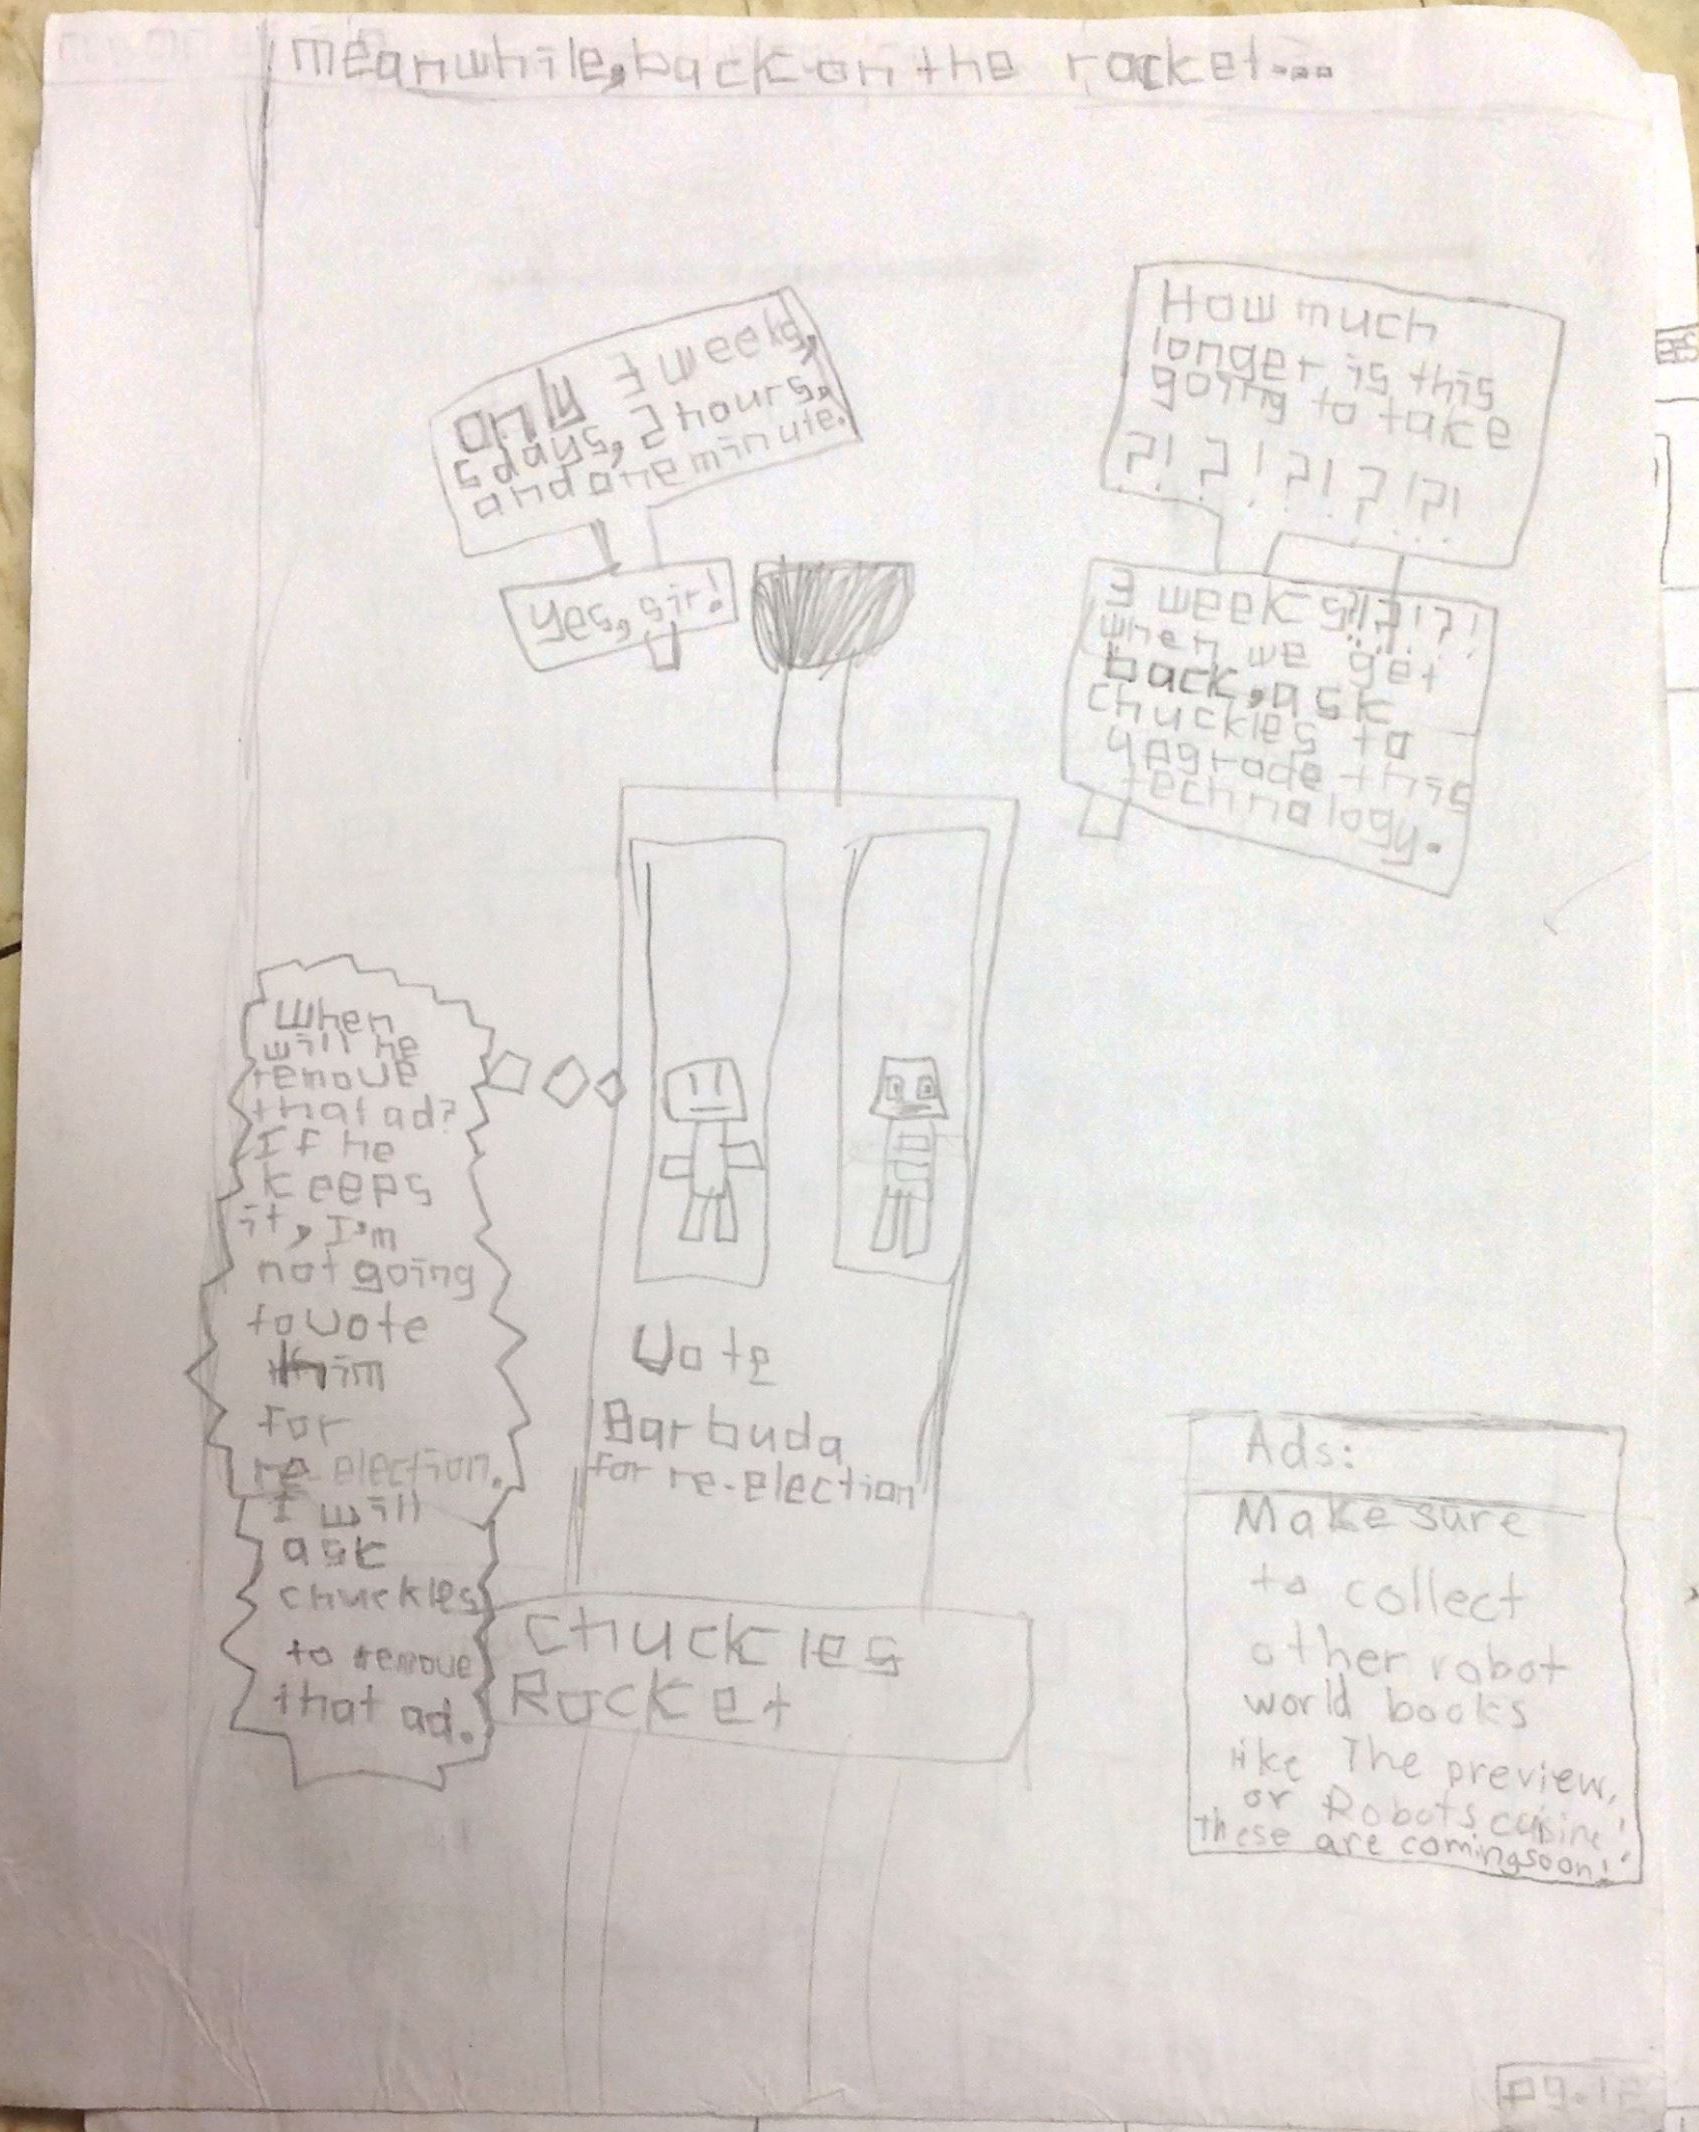 meanwhile, back on the rocket...
How much
longer is this
going to take
?!?!?!?!?!
only 3 weeks,
5 days, 2 hours,
and one minute.
3 weeks?!?!?!
when we get
back, ask
chuckles to
upgrade this
technology.
yes, sir!
When
will he
remove
that ad?
If he
keeps
it, I'm
not going
to vote
him
for
re-election.
I will
ask
chuckles
to remove
that ad.
Vote
Barbuda
for re-election
chuckles
Rocket
Ads:
Make sure
to collect
other robot
world books
like The preview,
or Robots cuisine!
These are coming soon!